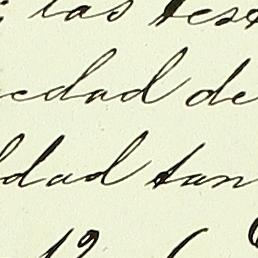 las test
edad de
ldad tan
12